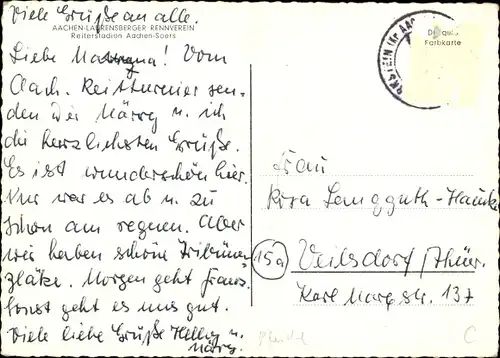 Viele Grüße an alle.
AACHEN-LAURENSBERGER RENNVEREIN
Reiterstadion Aachen-Soers
Liebe ! Vom
Aach. Reitturnier sen-
den Dir u. ich
die herzlichsten Grüße.
Es ist wunderschön hier.
Nur war es ab u. zu
schon am regnen. Aber
wir haben schöne Tribünen-
plätze. Morgen geht
Sonst geht es uns gut.
Viele liebe Grüße u.
Farbkarte
Frau
Rosa Langguth-
15a Veilsdorf / Thür.
Karl Marx str. 137
C